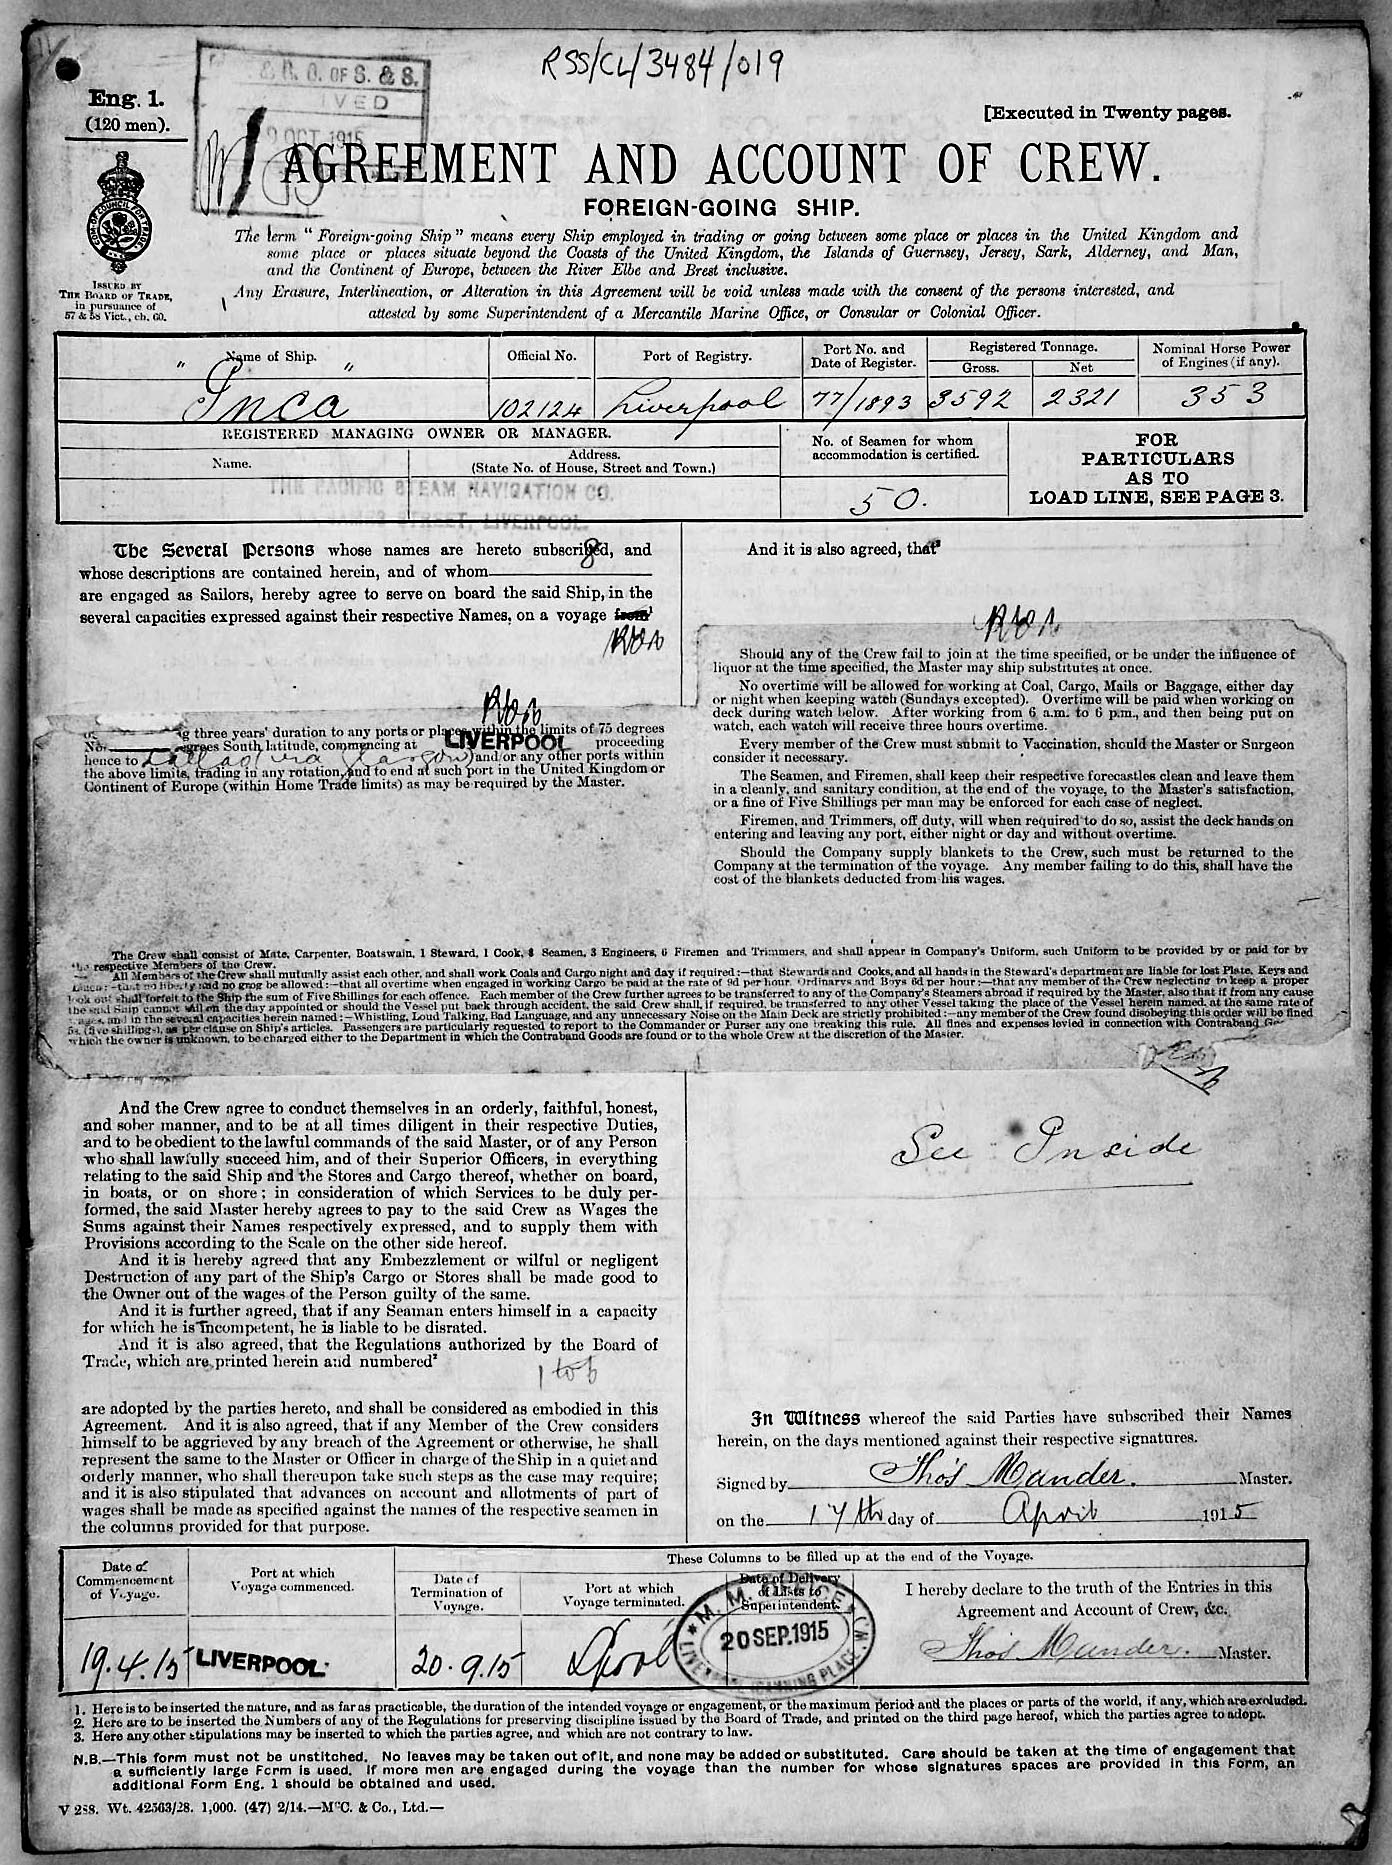 RSS/CL/3484/019
Eng. 1.
(120 men).
& R. O. OF S. & S.
IVED
OCT 1915
[Executed in Twenty pages.
AGREEMENT AND ACCOUNT OF CREW.
FOREIGN-GOING SHIP.
ISSUED BY
THE BOARD OF TRADE,
in pursuance of
57 & 58 Vict., ch. 60.
The term "Foreign-going Ship" means every Ship employed in trading or going between some place or places in the United Kingdom and
some place or places situate beyond the Coasts of the United Kingdom, the Islands of Guernsey, Jersey, Sark, Alderney, and Man,
and the Continent of Europe, between the River Elbe and Brest inclusive.
Any Erasure, Interlineation, or Alteration in this Agreement will be void unless made with the consent of the persons interested, and
attested by some Superintendent of a Mercantile Marine Office, or Consular or Colonial Officer.
Name of Ship. Official No. Port of Registry. Port No. and Date of Register. Registered Tonnage. Gross. Net Nominal Horse Power of Engines (if any).
" Inca " 102124 Liverpool 77/1893 3592 2321 353
REGISTERED MANAGING OWNER OR MANAGER.
Name. Address.
(State No. of House, Street and Town.)
No. of Seamen for whom
accommodation is certified.
50.
FOR
PARTICULARS
AS TO
LOAD LINE, SEE PAGE 3.
THE PACIFIC STEAM NAVIGATION CO.
STREET, LIVERPOOL.
The Several Persons whose names are hereto subscribed, and
whose descriptions are contained herein, and of whom 8
are engaged as Sailors, hereby agree to serve on board the said Ship, in the
several capacities expressed against their respective Names, on a voyage from¹
g three years' duration to any ports or places within the limits of 75 degrees
No. grees South latitude, commencing at LIVERPOOL proceeding
hence to and/or any other ports within
the above limits, trading in any rotation, and to end at such port in the United Kingdom or
Continent of Europe (within Home Trade limits) as may be required by the Master.
And it is also agreed, that³
Should any of the Crew fail to join at the time specified, or be under the influence of
liquor at the time specified, the Master may ship substitutes at once.
No overtime will be allowed for working at Coal, Cargo, Mails or Baggage, either day
or night when keeping watch (Sundays excepted). Overtime will be paid when working on
deck during watch below. After working from 6 a.m. to 6 p.m., and then being put on
watch, each watch will receive three hours overtime.
Every member of the Crew must submit to Vaccination, should the Master or Surgeon
consider it necessary.
The Seamen, and Firemen, shall keep their respective forecastles clean and leave them
in a cleanly, and sanitary condition, at the end of the voyage, to the Master's satisfaction,
or a fine of Five Shillings per man may be enforced for each case of neglect.
Firemen, and Trimmers, off duty, will when required to do so, assist the deck hands on
entering and leaving any port, either night or day and without overtime.
Should the Company supply blankets to the Crew, such must be returned to the
Company at the termination of the voyage. Any member failing to do this, shall have the
cost of the blankets deducted from his wages.
The Crew shall consist of Mate, Carpenter, Boatswain, 1 Steward, 1 Cook, 8 Seamen, 3 Engineers, 6 Firemen and Trimmers, and shall appear in Company's Uniform, such Uniform to be provided by or paid for by
the respective Members of the Crew.
All Members of the Crew shall mutually assist each other, and shall work Coals and Cargo night and day if required:—that Stewards and Cooks, and all hands in the Steward's department are liable for lost Plate, Keys and
Linen:—that no liberty and no grog be allowed:—that all overtime when engaged in working Cargo be paid at the rate of 9d per hour. Ordinarys and Boys 6d per hour:—that any member of the Crew neglecting to keep a proper
look out shall forfeit to the Ship the sum of Five Shillings for each offence. Each member of the Crew further agrees to be transferred to any of the Company's Steamers abroad if required by the Master, also that if from any cause
the said Ship cannot sail on the day appointed or should the Vessel put back through accident, the said Crew shall, if required, be transferred to any other Vessel taking the place of the Vessel herein named, at the same rate of
wages, and in the several capacities herein named:—Whistling, Loud Talking, Bad Language, and any unnecessary Noise on the Main Deck are strictly prohibited:—any member of the Crew found disobeying this order will be fined
5s. (five shillings), as per clause on Ship's articles. Passengers are particularly requested to report to the Commander or Purser any one breaking this rule. All fines and expenses levied in connection with Contraband
which the owner is unknown, to be charged either to the Department in which the Contraband Goods are found or to the whole Crew at the discretion of the Master.
And the Crew agree to conduct themselves in an orderly, faithful, honest,
and sober manner, and to be at all times diligent in their respective Duties,
and to be obedient to the lawful commands of the said Master, or of any Person
who shall lawfully succeed him, and of their Superior Officers, in everything
relating to the said Ship and the Stores and Cargo thereof, whether on board,
in boats, or on shore; in consideration of which Services to be duly per-
formed, the said Master hereby agrees to pay to the said Crew as Wages the
Sums against their Names respectively expressed, and to supply them with
Provisions according to the Scale on the other side hereof.
And it is hereby agreed that any Embezzlement or wilful or negligent
Destruction of any part of the Ship's Cargo or Stores shall be made good to
the Owner out of the wages of the Person guilty of the same.
And it is further agreed, that if any Seaman enters himself in a capacity
for which he is incompetent, he is liable to be disrated.
And it is also agreed, that the Regulations authorized by the Board of
Trade, which are printed herein and numbered²
1 to 6
are adopted by the parties hereto, and shall be considered as embodied in this
Agreement. And it is also agreed, that if any Member of the Crew considers
himself to be aggrieved by any breach of the Agreement or otherwise, he shall
represent the same to the Master or Officer in charge of the Ship in a quiet and
orderly manner, who shall thereupon take such steps as the case may require;
and it is also stipulated that advances on account and allotments of part of
wages shall be made as specified against the names of the respective seamen in
the columns provided for that purpose.
See Inside
In Witness whereof the said Parties have subscribed their Names
herein, on the days mentioned against their respective signatures.
Signed by Thos Mander. Master.
on the 17th day of April 1915
These Columns to be filled up at the end of the Voyage.
Date of Commencement of Voyage. Port at which Voyage commenced. Date of Termination of Voyage. Port at which Voyage terminated. Date of Delivery of Lists to Superintendent.
I hereby declare to the truth of the Entries in this
Agreement and Account of Crew, &c.
19.4.15 LIVERPOOL 20.9.15 L'pool
20 SEP. 1915
Thos Mander. Master.
1. Here is to be inserted the nature, and as far as practicable, the duration of the intended voyage or engagement, or the maximum period and the places or parts of the world, if any, which are excluded.
2. Here are to be inserted the Numbers of any of the Regulations for preserving discipline issued by the Board of Trade, and printed on the third page hereof, which the parties agree to adopt.
3. Here any other stipulations may be inserted to which the parties agree, and which are not contrary to law.
N.B.—This form must not be unstitched. No leaves may be taken out of it, and none may be added or substituted. Care should be taken at the time of engagement that
a sufficiently large Form is used. If more men are engaged during the voyage than the number for whose signatures spaces are provided in this Form, an
additional Form Eng. 1 should be obtained and used.
V 288. Wt. 42563/28. 1,000. (47) 2/14.—McC. & Co., Ltd.—